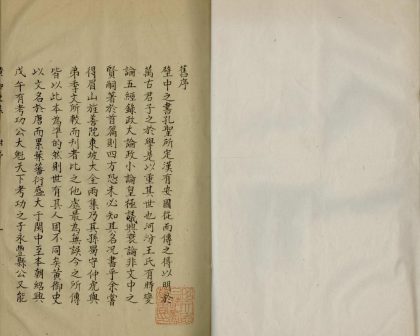 舊序
壁中之書孔聖所定漢有安國從而傳之得以明於
萬古君子之於學是以重其世也河汾王氏有時變
論五經錄政大論政小論皇極讜議興衰論非文中之
賢嗣著於首篇則四方恐未必知其名况書乎余嘗
得眉山旌善院東坡大全兩集乃其孫蜀守仲虎與
弟季文所較而刊者比之他處最為無誤今之所傳
皆以此本為準的然則世有其人固不同矣黃御史
以文名於唐而累葉蕃衍盛大于閩中至本朝紹興
戊午有考功公大魁天下考功之子永豐縣公又能